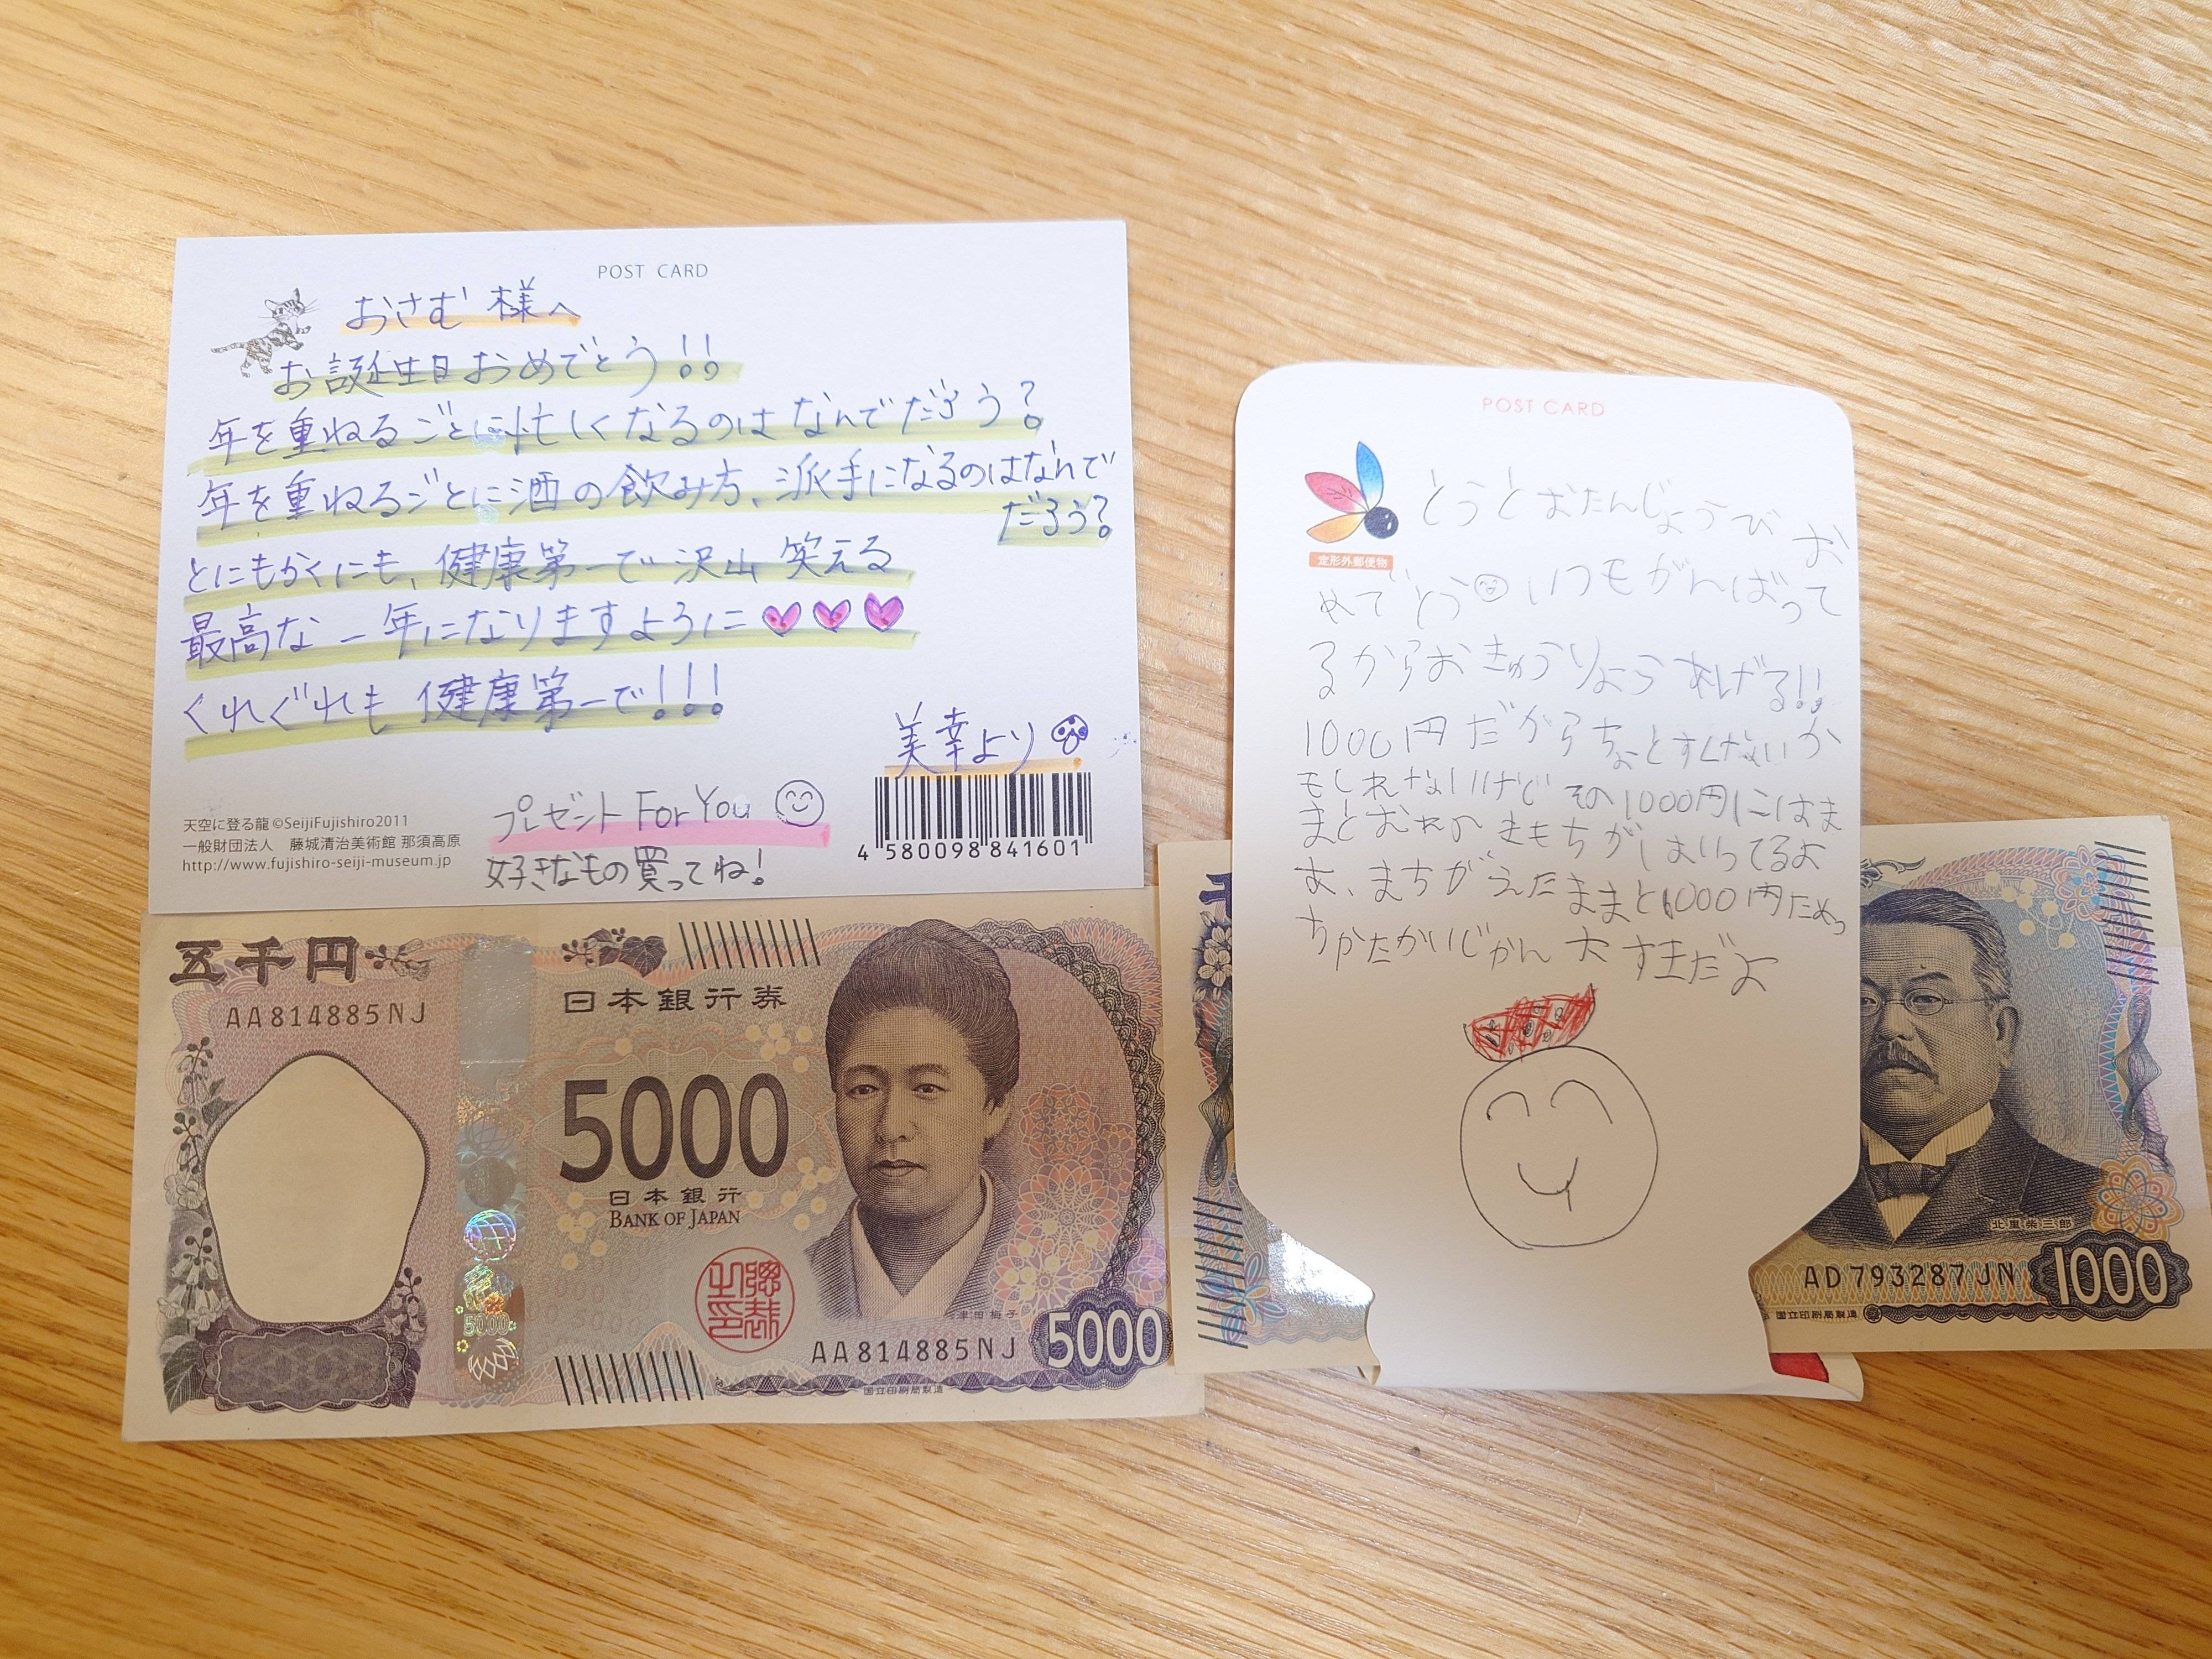 POST CARD
おさむ 様へ
お誕生日おめでとう!!
年を重ねるごとに忙しくなるのはなんでだろう?
年を重ねるごとに酒の飲み方、派手になるのはなんで
だろう?
とにもかくにも、健康第一で沢山 笑える
最高な一年になりますように
くれぐれも 健康第一で!!!
美幸より
プレゼント For You
好きなもの買ってね!
天空に登る龍 ©SeijiFujishiro2011
一般財団法人 藤城清治美術館 那須高原
http://www.fujishiro-seiji-museum.jp
4 580098 841601
五千円
AA814885NJ
日本銀行券
5000
日本銀行
BANK OF JAPAN
津田梅子
AA814885NJ
5000
国立印刷局製造
POST CARD
定形外郵便物
とうとおたんじょうび お
めでとう いつもがんばって
るからおきゅうりょうあげる!!
1000円だからちょとすくないか
もしれないけどその1000円にはま
まとおれのきもちがはいってるよ
あ、まちがえたままと1000円だめっ
ちかたかいじかん大すきだよ
千
北里柴三郎
AD793287JN
1000
国立印刷局製造